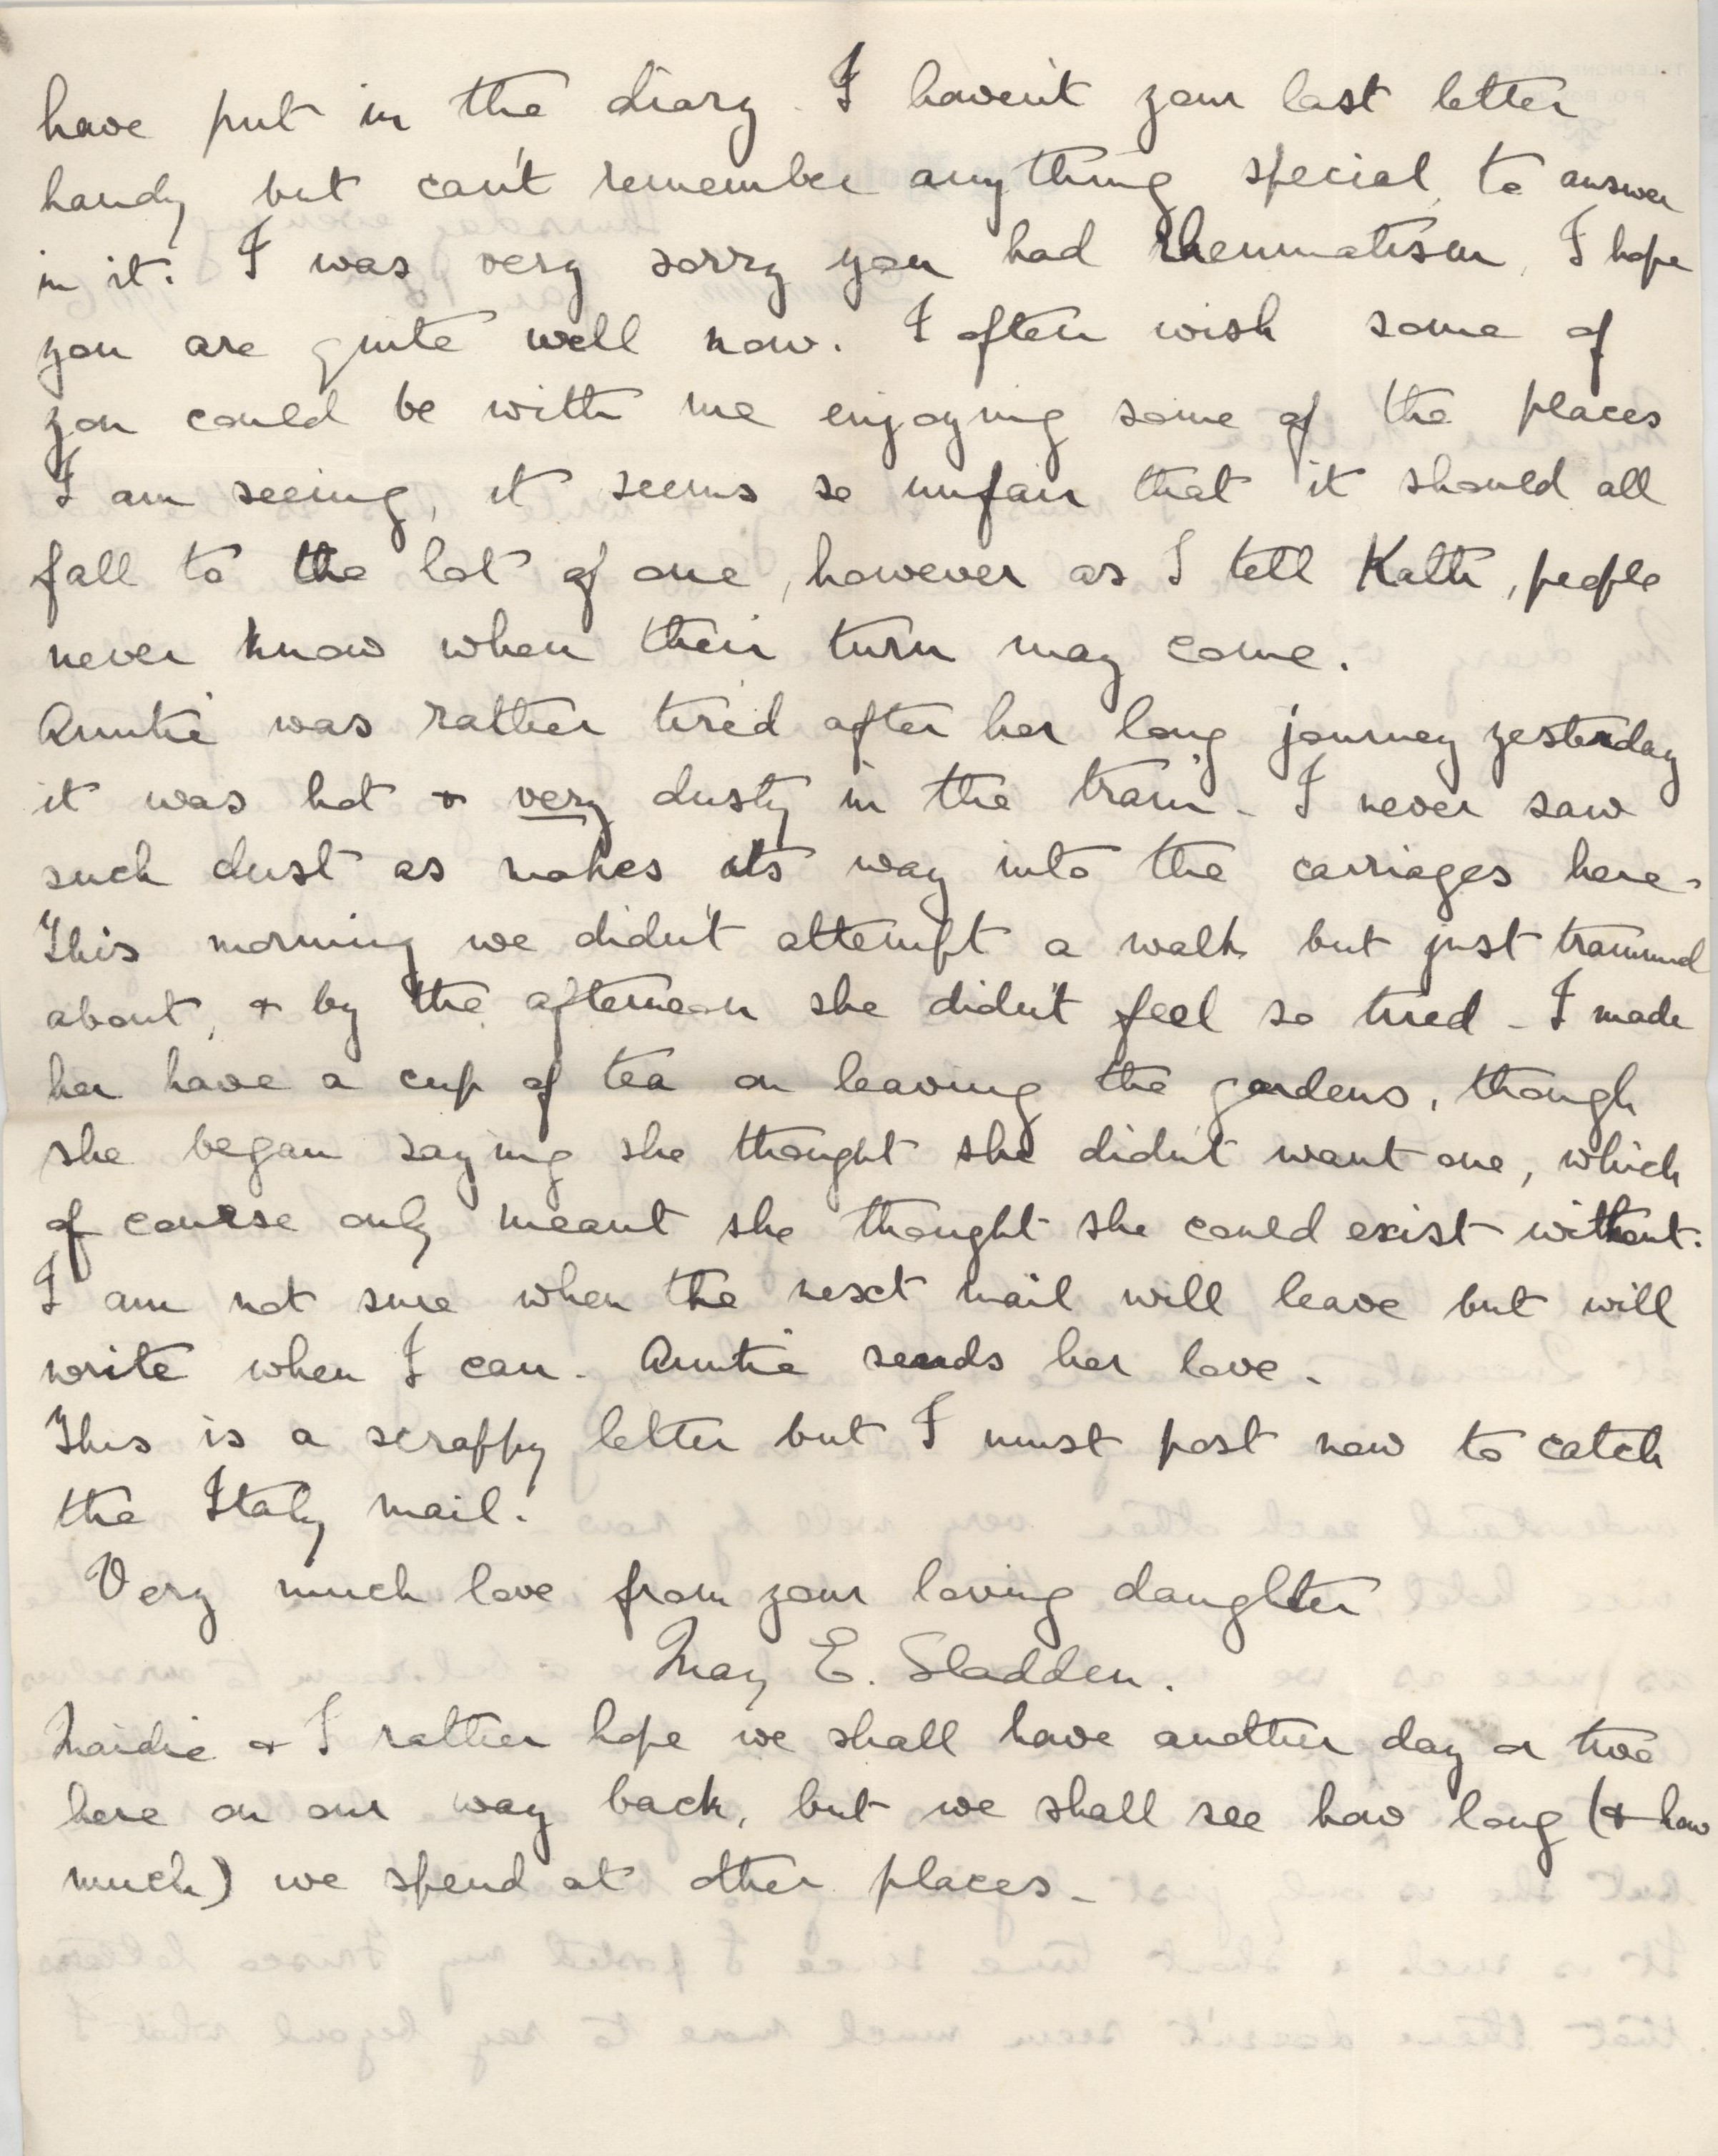 have put in the diary. I haven't your last letter
handy but can't remember anything special to answer
in it. I was very sorry you had rheumatism, I hope
you are quite well now. I often wish some of
you could be with me enjoying some of the places
I am seeing, it seems so unfair that it should all
fall to the lot of one, however as I tell Kath, people
never know when their turn may come.
Auntie was rather tired after her long journey yesterday
it was hot & very dusty in the train - I never saw
such dust as makes its way into the carriages here -
This morning we didn't attempt a walk but just trammed
about, & by the afternoon she didn't feel so tired - I made
her have a cup of tea on leaving the gardens, though
she began saying she thought she didn't want one, which
of course only meant she thought she could exist without.
I am not sure when the next mail will leave but will
write when I can. Auntie sends her love.
This is a scrappy letter but I must post now to catch
the Italy mail.
Very much love from your loving daughter
May E. Sladden.
Maidie & I rather hope we shall have another day or two
here on our way back, but we shall see how long (& how
much) we spend at other places -